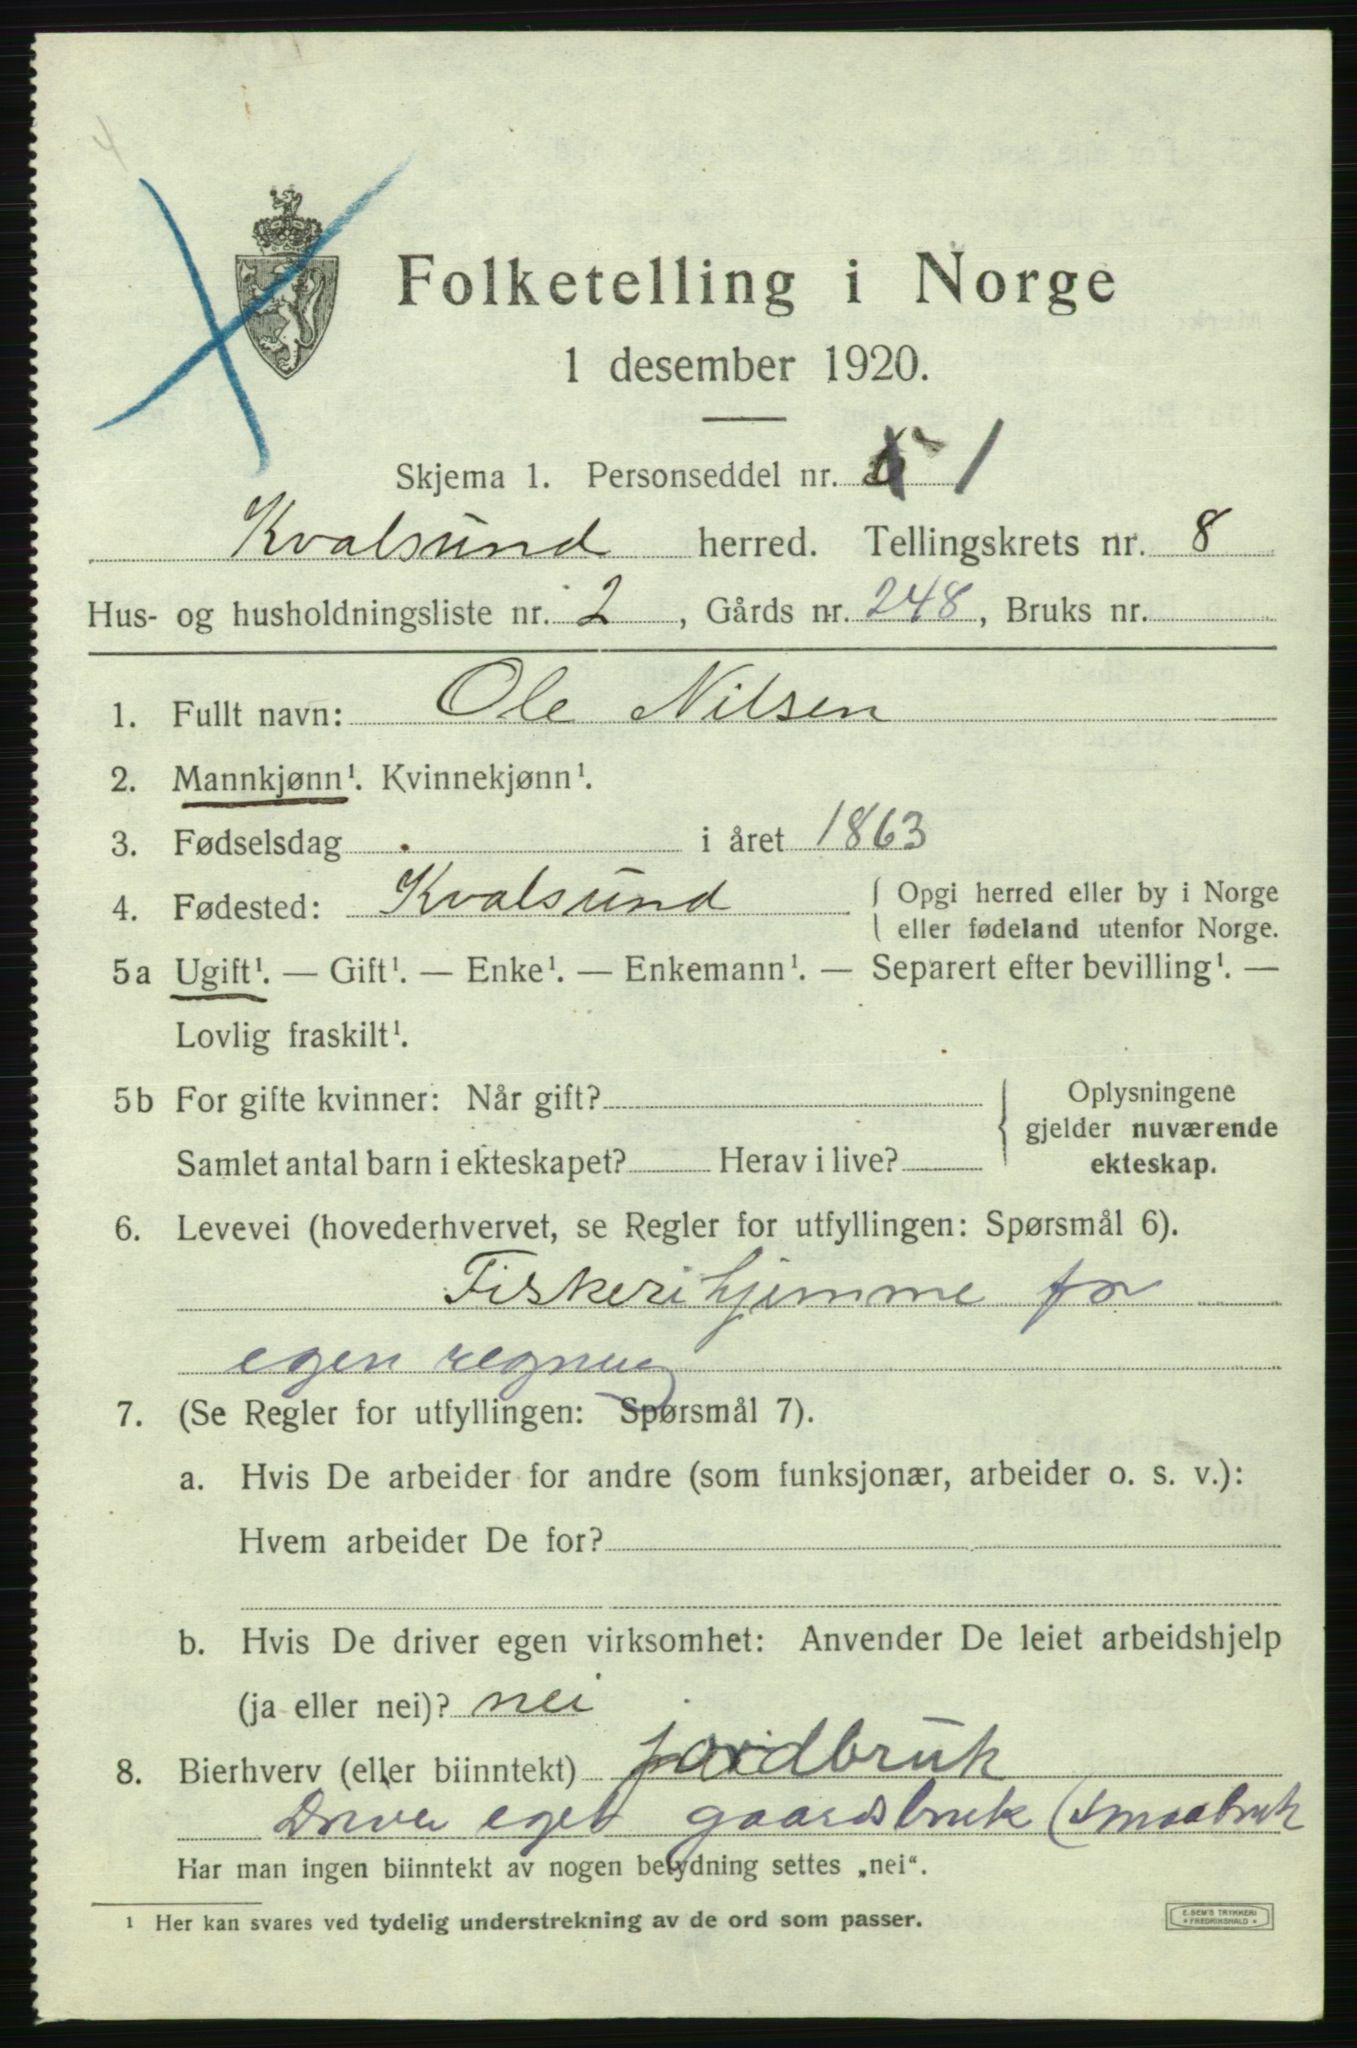 4
Folketelling i Norge
1 desember 1920.
Skjema 1. Personseddel nr. 1
Kvalsund herred. Tellingskrets nr. 8
Hus- og husholdningsliste nr. 2, Gårds nr. 248, Bruks nr.
1. Fullt navn: Ole Nilsen
2. Mannkjønn¹. Kvinnekjønn¹.
3. Fødselsdag i året 1863
4. Fødested: Kvalsund { Opgi herred eller by i Norge
eller fødeland utenfor Norge.
5a Ugift¹. — Gift¹. — Enke¹. — Enkemann¹. — Separert efter bevilling¹. —
Lovlig fraskilt¹.
5b For gifte kvinner: Når gift?
Samlet antal barn i ekteskapet? Herav i live?
Oplysningene
gjelder nuværende
ekteskap.
6. Levevei (hovederhvervet, se Regler for utfyllingen: Spørsmål 6).
Fiskeri hjemme for
egen regning
7. (Se Regler for utfyllingen: Spørsmål 7).
a. Hvis De arbeider for andre (som funksjonær, arbeider o. s. v.):
Hvem arbeider De for?
b. Hvis De driver egen virksomhet: Anvender De leiet arbeidshjelp
(ja eller nei)? nei
8. Bierhverv (eller biinntekt) jordbruk
Driver eget gaardsbruk (smaabruk
Har man ingen biinntekt av nogen betydning settes „nei".
¹ Her kan svares ved tydelig understrekning av de ord som passer.
E. SEM'S TRYKKERI
FREDRIKSHALD